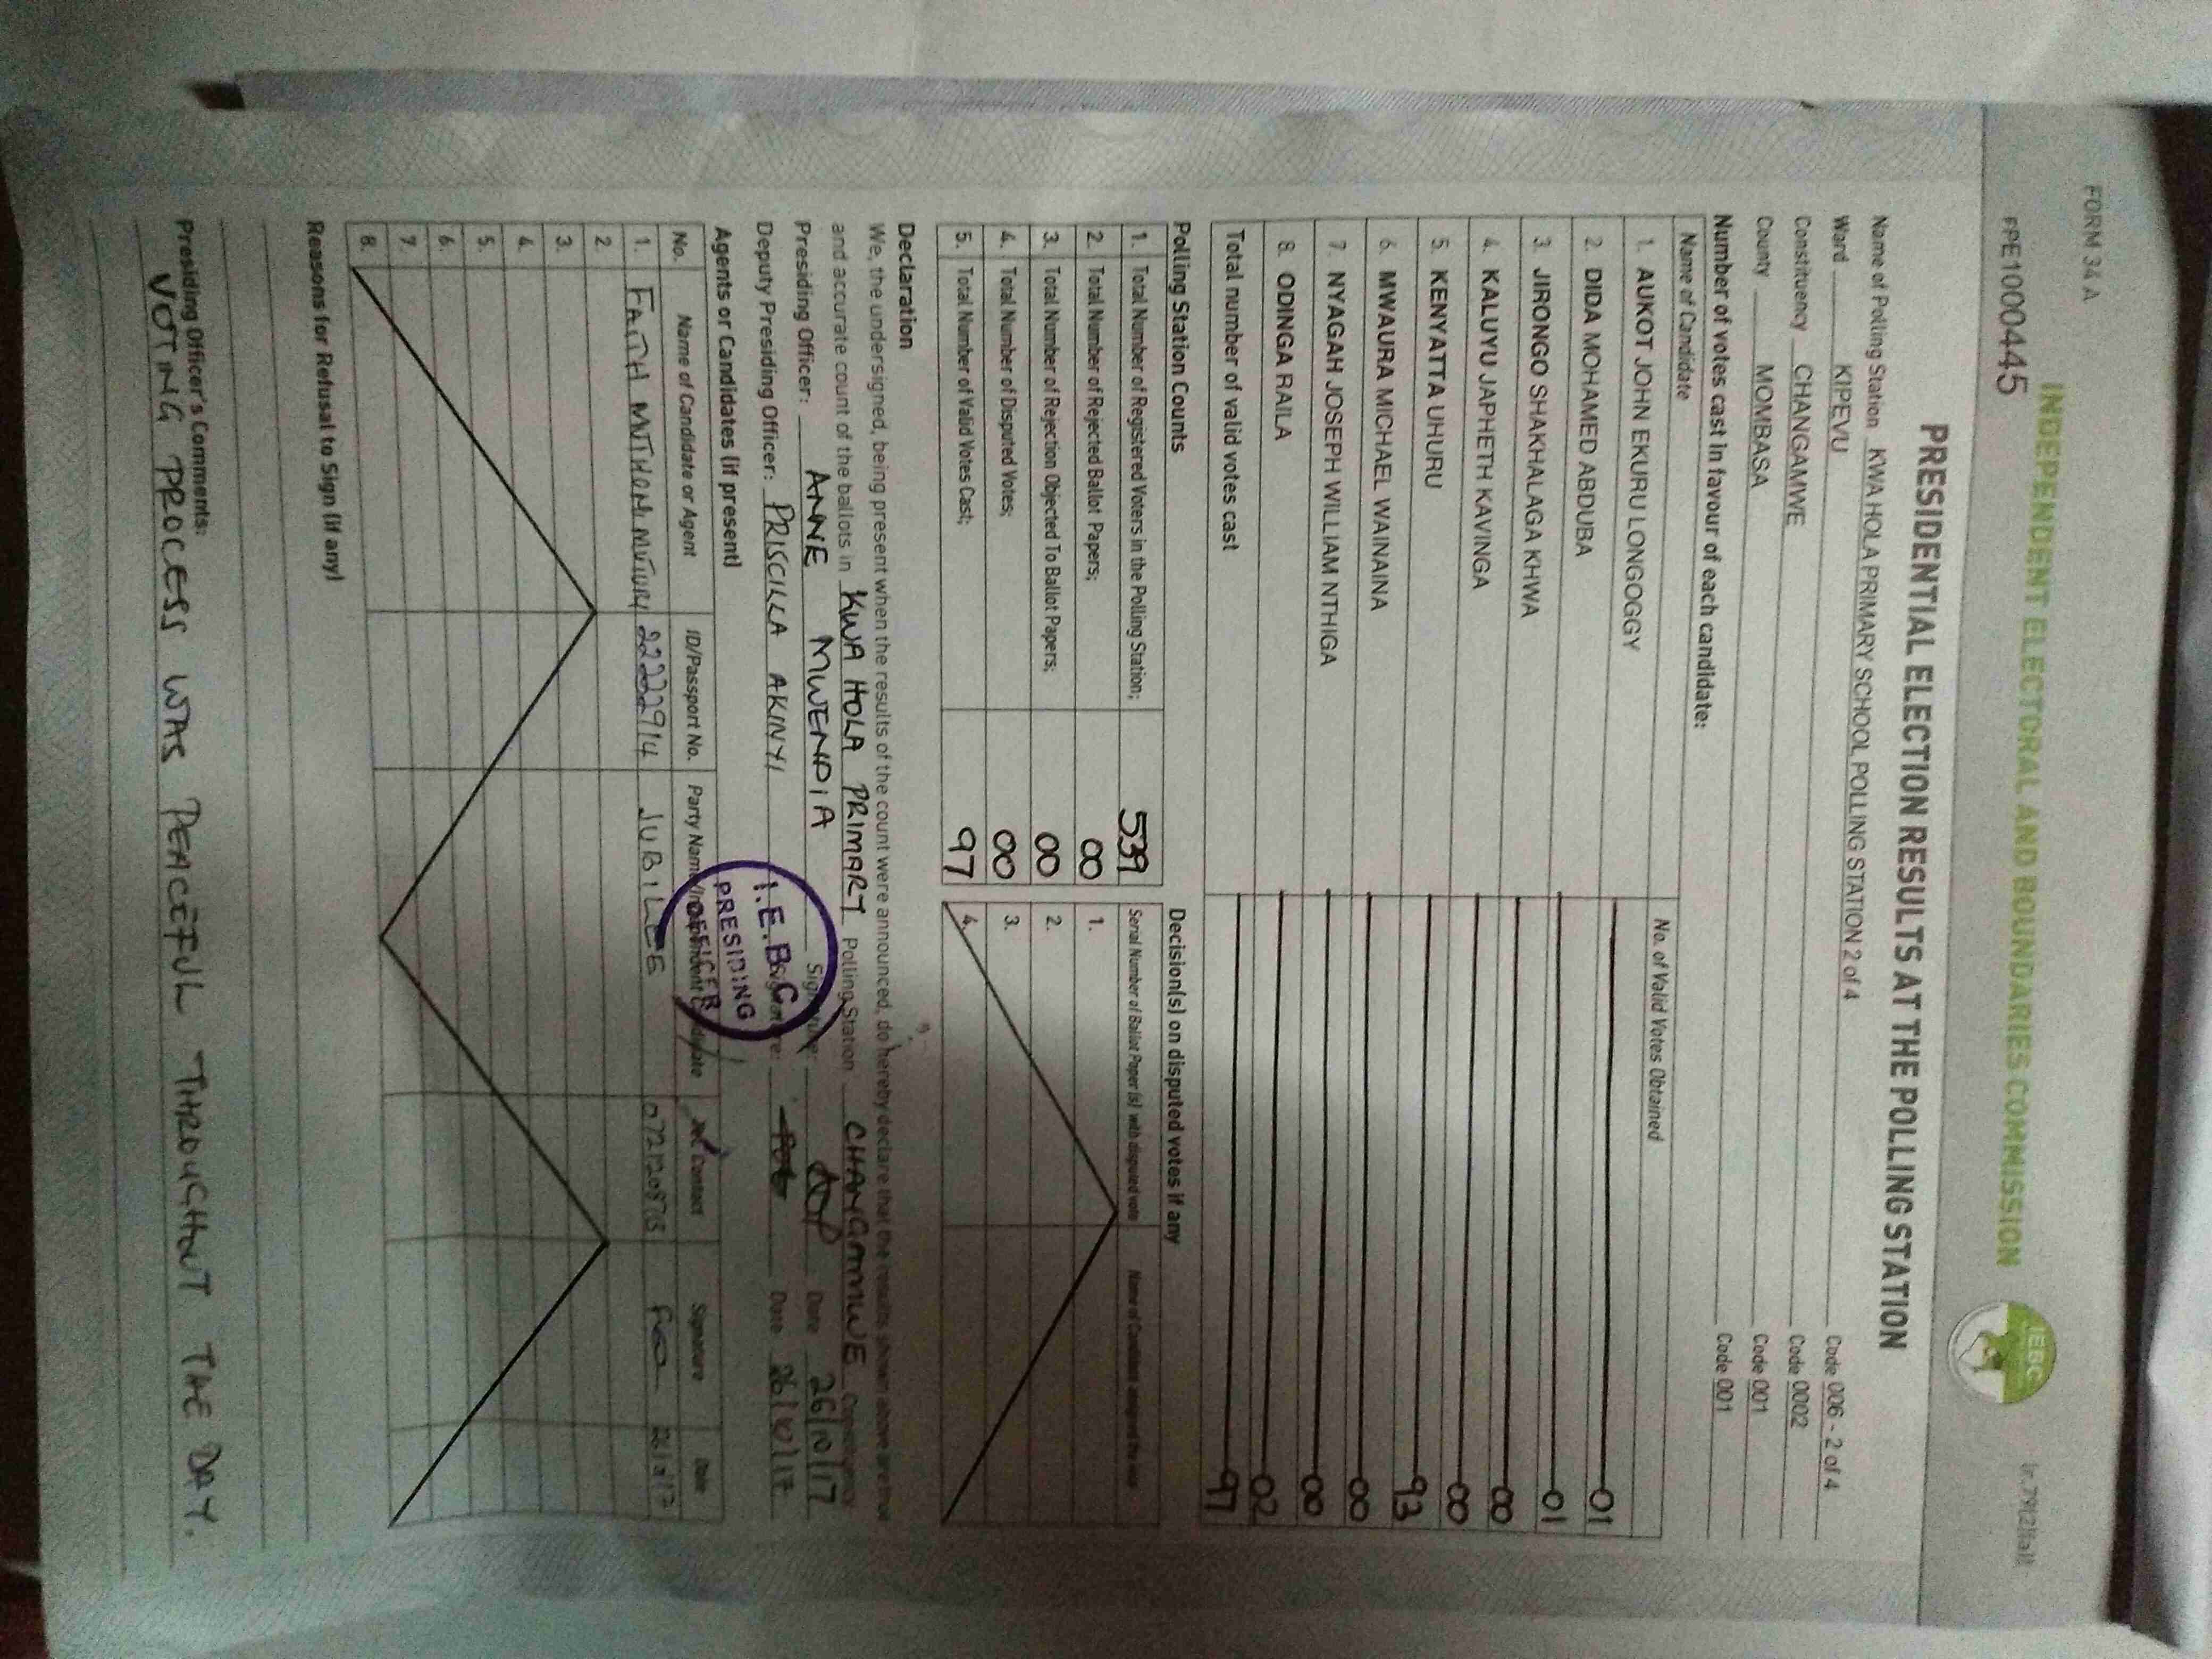 FORM 34 A
INDEPENDENT ELECTORAL AND BOUNDARIES COMMISSION
IEBC
FPE1000445
PRESIDENTIAL ELECTION RESULTS AT THE POLLING STATION
Name of Polling Station KWA HOLA PRIMARY SCHOOL POLLING STATION 2 of 4 Code 006 - 2 of 4
Ward KIPEVU Code 0002
Constituency CHANGAMWE Code 001
County MOMBASA Code 001
Number of votes cast in favour of each candidate:
Name of Candidate No. of Valid Votes Obtained
1. AUKOT JOHN EKURU LONGOGGY 01
2. DIDA MOHAMED ABDUBA 01
3. JIRONGO SHAKHALAGA KHWA 00
4. KALUYU JAPHETH KAVINGA 00
5. KENYATTA UHURU 93
6. MWAURA MICHAEL WAINAINA 00
7. NYAGAH JOSEPH WILLIAM NTHIGA 00
8. ODINGA RAILA 02
Total number of valid votes cast 97
Polling Station Counts
1. Total Number of Registered Voters in the Polling Station; 539
2. Total Number of Rejected Ballot Papers; 00
3. Total Number of Rejection Objected To Ballot Papers; 00
4. Total Number of Disputed Votes; 00
5. Total Number of Valid Votes Cast; 97
Decision(s) on disputed votes if any
Serial Number of Ballot Paper (s) with disputed vote
1.
2.
3.
4.
Declaration
We, the undersigned, being present when the results of the count were announced, do hereby declare that the results shown above are true
and accurate count of the ballots in KWA HOLA PRIMARY Polling Station CHANGAMWE Constituency
Presiding Officer: ANNE MWENDIA Signature: Date 26/10/17
Deputy Presiding Officer: PRISCILLA AKINYI Signature: Date 26/10/17
I.E.B.C
PRESIDING
OFFICER
Agents or Candidates (if present)
No. Name of Candidate or Agent ID/Passport No. Party Name/Independent Candidate Contact Signature Date
1. FAITH MUTHONI MUTURI 22222914 JUBILEE
2.
3.
4.
5.
6.
7.
8.
Reasons for Refusal to Sign (if any)
Presiding Officer's Comments:
VOTING PROCESS WAS PEACEFUL THROUGHOUT THE DAY.